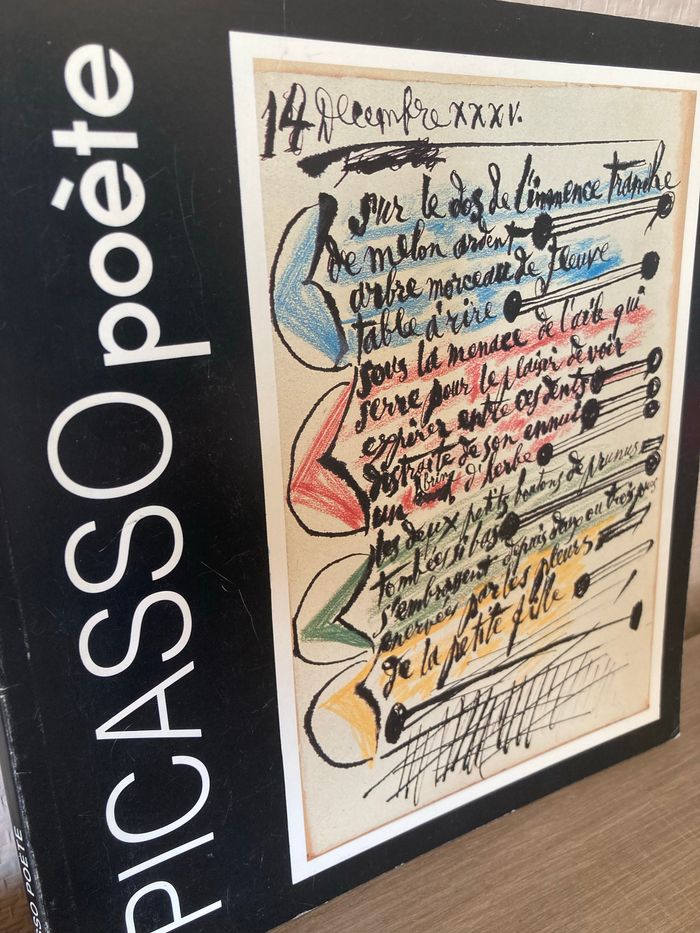 PICASSO poète
14 Decembre XXXV.
sur le dos de l'immence tranche
de melon ardent
arbre morceau de fleuve
table à rire
sous la menace de l'aile qui
serre pour le plaisir de voir
expirer entre ces dents
distraite de son ennui
un brin d'herbe
les deux petits boutons de prunus
tombés si bas
s'embrassent depuis deux ou trois jours
enervés par les pleurs
de la petite fille
SSO POÈTE